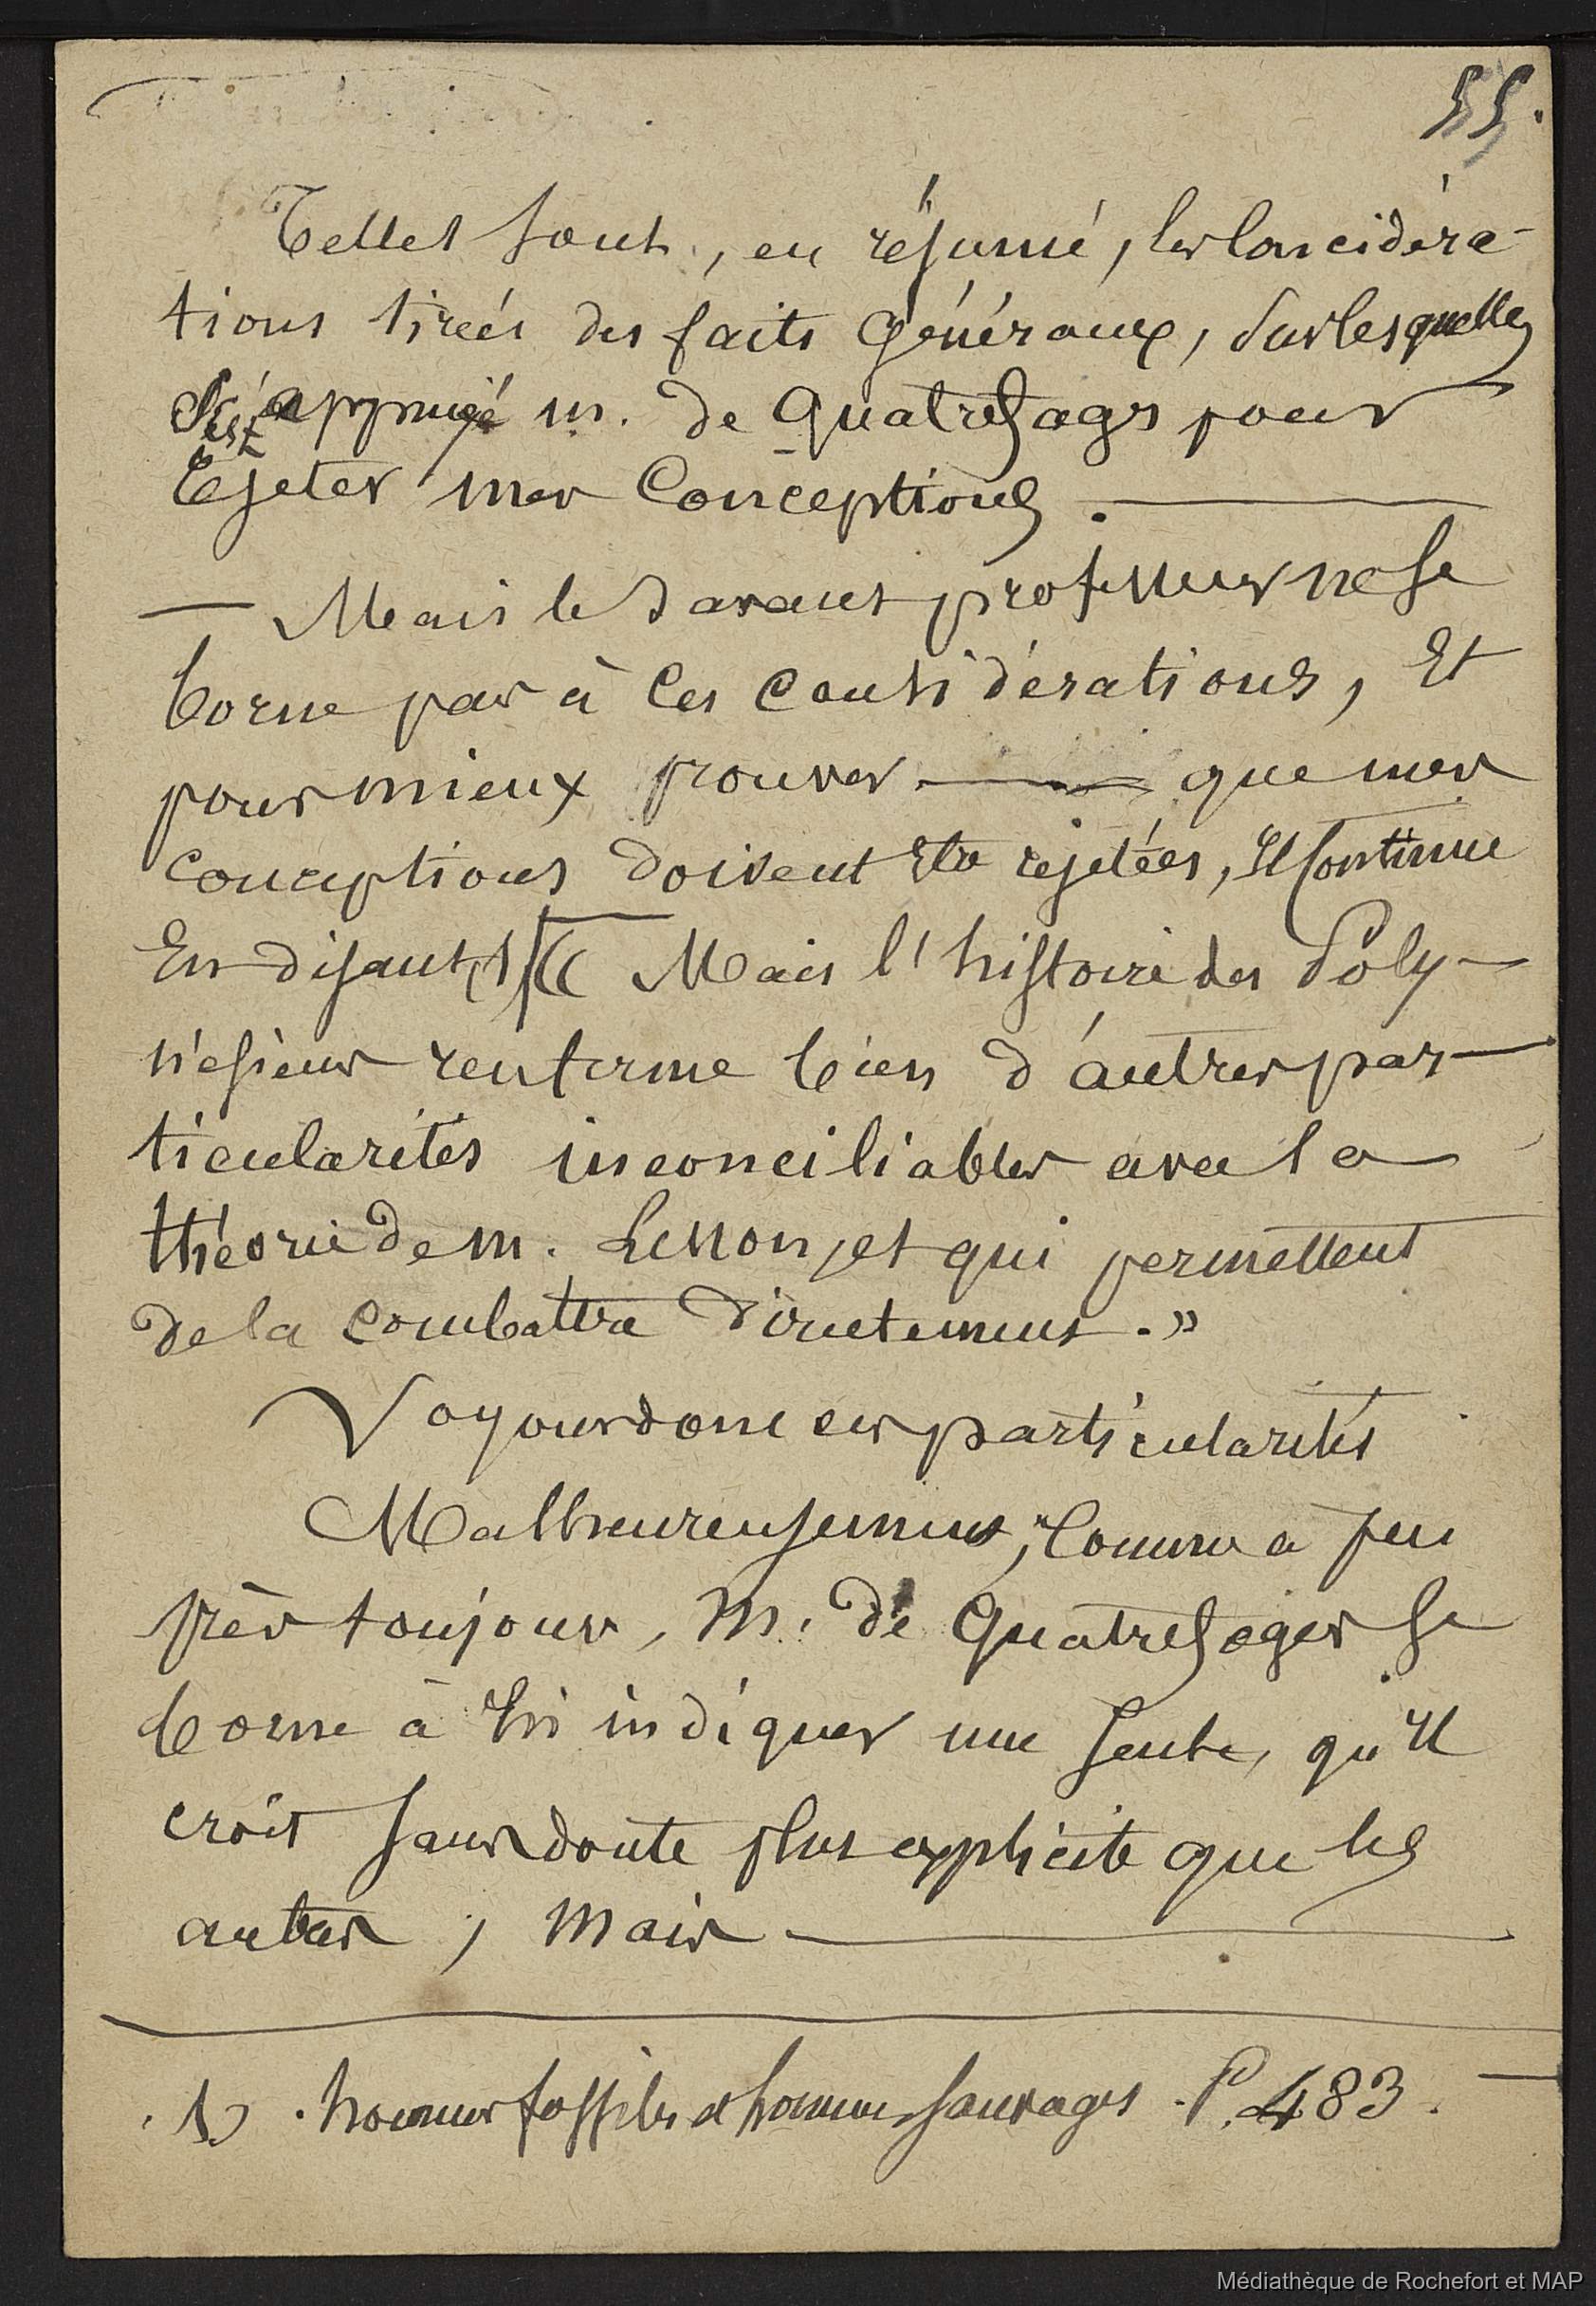 55.
Telles sont, en résumé, les considéra-
tions tirées des faits généraux, sur lesquelles
s'est appuyé m. de Quatrefages pour
rejeter mes conceptions.
— Mais le savant professeur ne se
borne pas à ces considérations, Et
pour mieux prouver — que mes
conceptions doivent être rejetées, Il continue
En disant (1) « Mais l'histoire des Poly-
nésiens renferme bien d'autres par-
ticularités inconciliables avec la
théorie de m. Lesson, et qui permettent
de la combattre directement. »
Voyons donc ces particularités
Malheureusement, comme à peu
près toujours, M. de Quatrefages se
borne à En indiquer une seule, qu'Il
croit sans doute plus explicite que les
autres, mais —
(1) . hommes fossiles et hommes sauvages . P. 483. —
Médiathèque de Rochefort et MAP